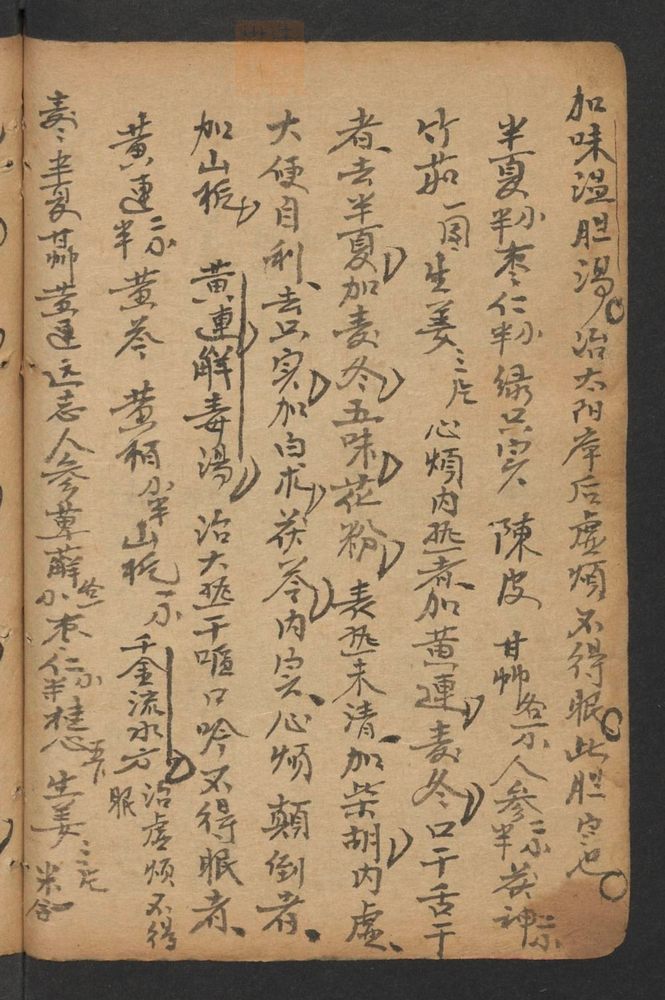 加味温胆湯治太阳牵后虚烦不得眠此胆寒也
半夏半小枣仁半小绿只实 陳皮 甘艸各一小人参半二小茯神二小
竹茹一团生姜三片 心烦内热者加黄連麦冬口干舌干
者去半夏加麦冬五味花粉 表热未清加柴胡内虚
大便自利去只实加白术茯苓内实心烦 顛倒者
加山栀 黄連解毒湯治大热干呕口吟不得眠者
黄連二小半黄芩 黄柏小半山栀一小千金流水方治虚烦不得眠
麦冬半夏甘艸黄連远志人参萆薢各小枣仁二小半桂心五卜生姜三片 米合